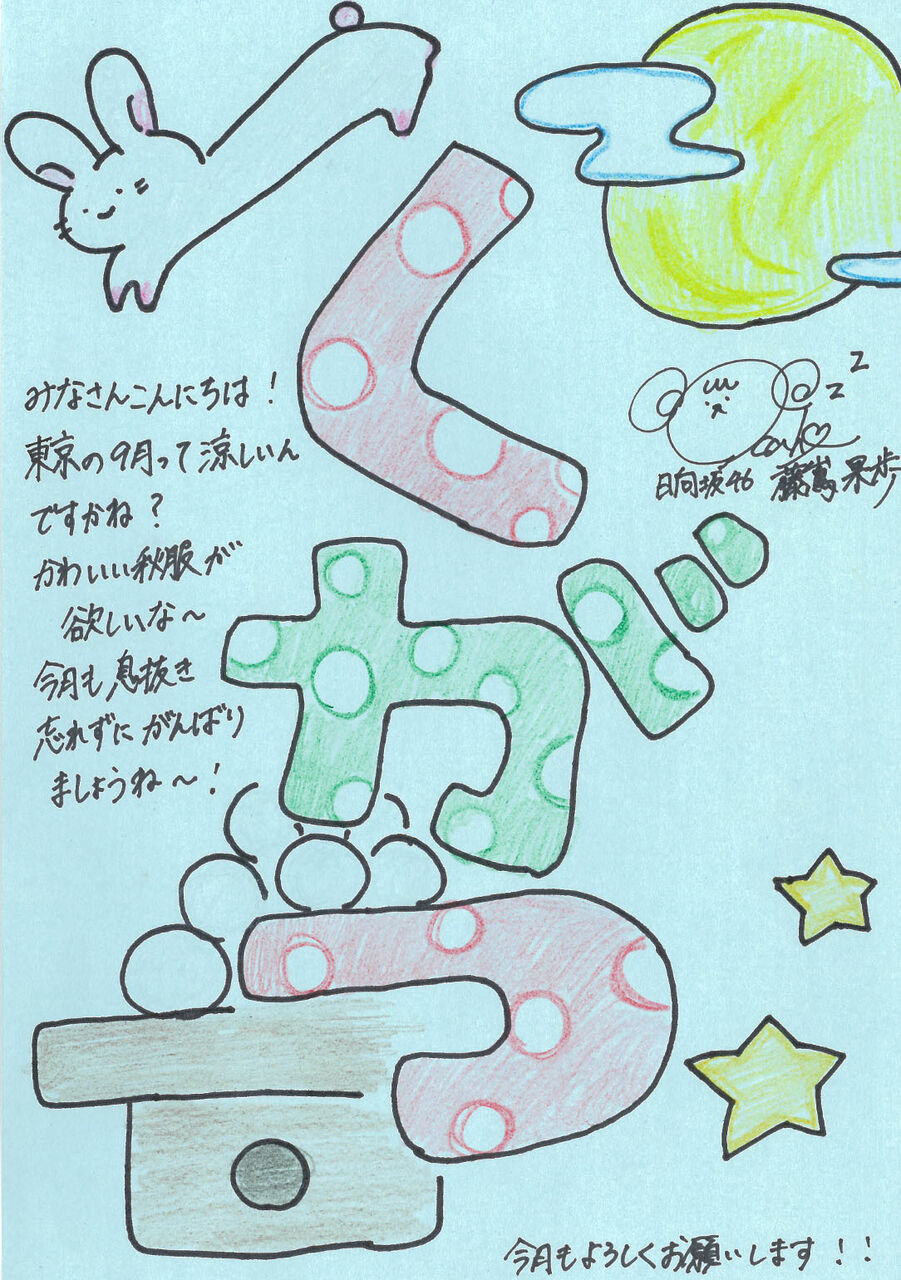 くがつ
みなさんこんにちは！
東京の9月って涼しいん
ですかね？
かわいい秋服が
欲しいな～
今月も息抜き
忘れずにがんばり
ましょうね～！
zz
日向坂46 藤嶌果歩
今月もよろしくお願いします！！